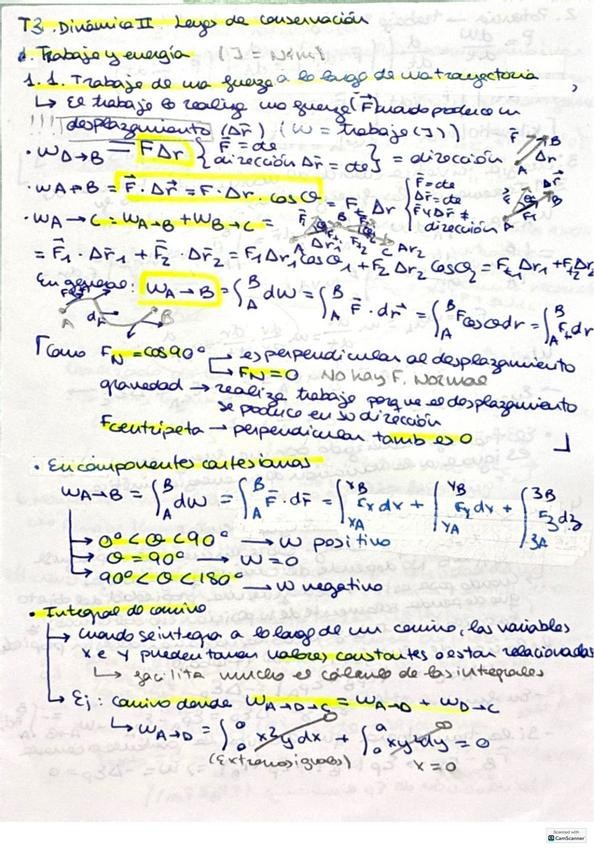 T3. Dinámica II Leyes de conservación
1. Trabajo y energía (J = N·m)
1.1. Trabajo de una fuerza a lo largo de una trayectoria
↳ El trabajo lo realiza una fuerza (F⃗) cuando produce un
!!! desplazamiento (Δr⃗) (W = trabajo (J))
• W A→B = F Δr { F⃗ = cte dirección Δr⃗ = cte } = dirección
F⃗ B A Δr⃗
• W A→B = F⃗ · Δr⃗ = F · Δr · cos θ = F_t Δr { F⃗ = cte Δr⃗ = cte F y Δr ≠ dirección
• W A→C = W A→B + W B→C =
A Δr⃗1 B F⃗2 C Δr⃗2
= F⃗1 · Δr⃗1 + F⃗2 · Δr⃗2 = F1 Δr1 cos θ1 + F2 Δr2 cos θ2 = F_t1 Δr1 + F_t2 Δr2
En general: W A→B = ∫_A^B dW = ∫_A^B F⃗ · dr⃗ = ∫_A^B F cos θ dr = ∫_A^B F_t dr
A dr⃗ B
Como F_N = cos 90° ↳ es perpendicular al desplazamiento
↳ F_N = 0 No hay F. Normal
gravedad → realiza trabajo porque el desplazamiento
se produce en su dirección
F centrípeta → perpendicular tamb es 0
• En componentes cartesianas
W A→B = ∫_A^B dW = ∫_A^B F⃗ · dr⃗ = ∫_xA^xB Fx dx + ∫_yA^yB Fy dy + ∫_zA^zB Fz dz
→ 0° < θ < 90° → W positivo
→ θ = 90° → W = 0
→ 90° < θ < 180° → W negativo
• Integral de camino
→ Cuando se integra a lo largo de un camino, las variables
x e y pueden tener valores constantes o estar relacionadas
↳ facilita mucho el cálculo de las integrales
→ Ej: camino donde W A→D→C = W A→D + W D→C
↳ W A→D = ∫_0^0 x²y dx + ∫_0^a xy² dy = 0
(Extremos iguales) x = 0
Scanned with
CamScanner